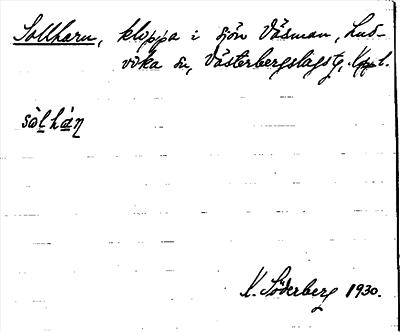 Sollharu, kloppa i sjön Väsman, Lud-
vika sn, Västerbergslagstg, Kppl.
sòlhán
K. Söderberg 1930.